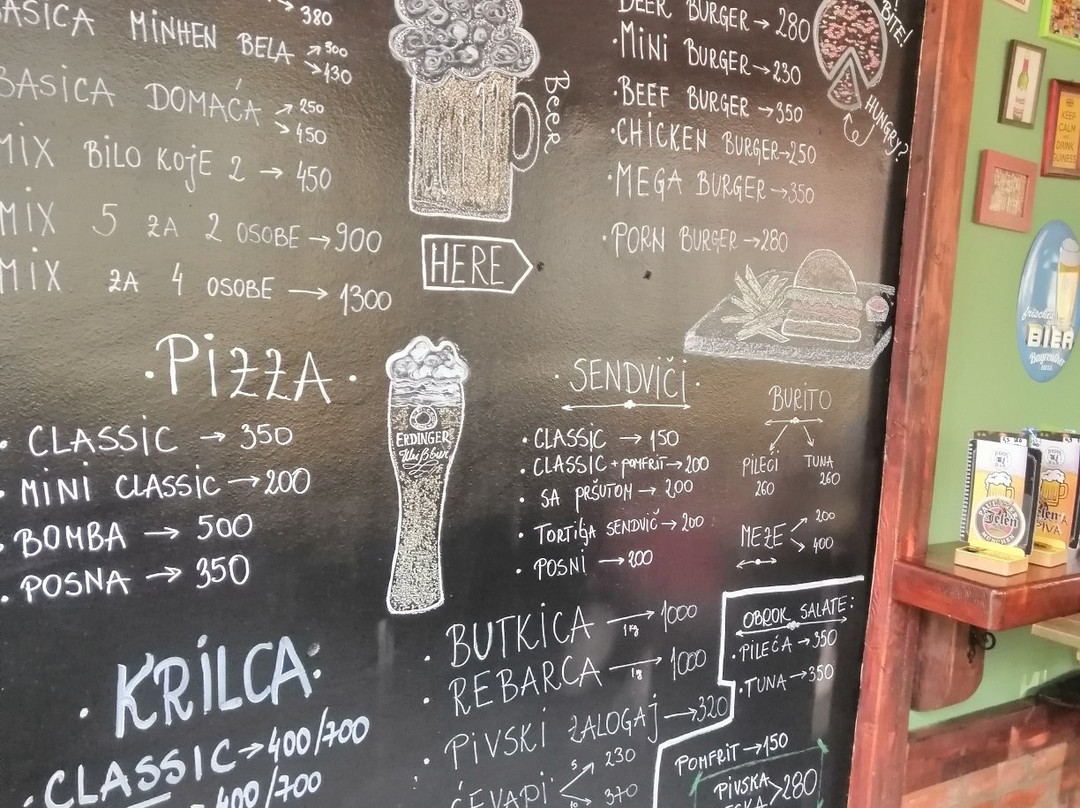 → 380
BASICA MINHEN BELA → 300
→ 430
BASICA DOMAĆA → 250
→ 450
MIX BILO KOJE 2 → 450
MIX 5 ZA 2 OSOBE → 900
MIX ZA 4 OSOBE → 1300
Beer
HERE
BEER BURGER → 280
• MINI BURGER → 230
• BEEF BURGER → 350
• CHICKEN BURGER → 250
• MEGA BURGER → 350
• PORN BURGER → 280
BITE!
HUNGRY?
• PIZZA •
• CLASSIC → 350
• MINI CLASSIC → 200
• BOMBA → 500
• POSNA → 350
ERDINGER
Weißbier
• SENDVIČI •
• CLASSIC → 150
• CLASSIC + POMFRIT → 200
• SA PRŠUTOM → 200
• TORTIĻA SENDVIČ → 200
• POSNI → 200
BURITO
PILEĆI 260
TUNA 260
MEZE → 200
→ 400
• KRILCA •
• CLASSIC → 400/700
→ 400/700
• BUTKICA 1kg → 1000
• REBARCA 1kg → 1000
• PIVSKI ZALOGAJ → 320
• ĆEVAPI 5 → 230
10 → 370
OBROK SALATE:
• PILEĆA → 350
• TUNA → 350
POMFRIT → 150
PIVSKA > 280
KEEP
CALM
AND
DRINK
GUINNESS
frisches
BIER
Bayreuther
Jelen